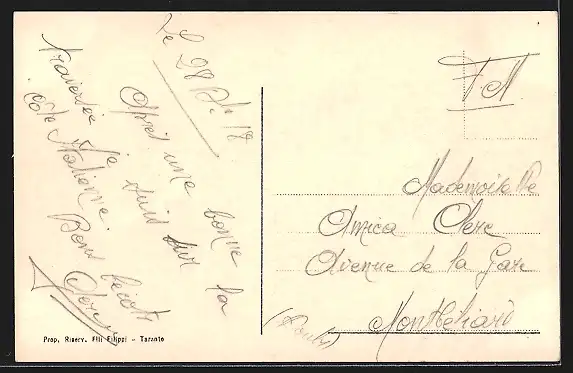 Le 28 D. 18
Après une bonne
traversée je suis sur la
Côte Italienne.
Bons baisers
F.M
Mademoiselle
Amica Clerc
Avenue de la Gare
Montbéliard
(Doubs)
Prop. Riserv. Flli Filippi - Taranto